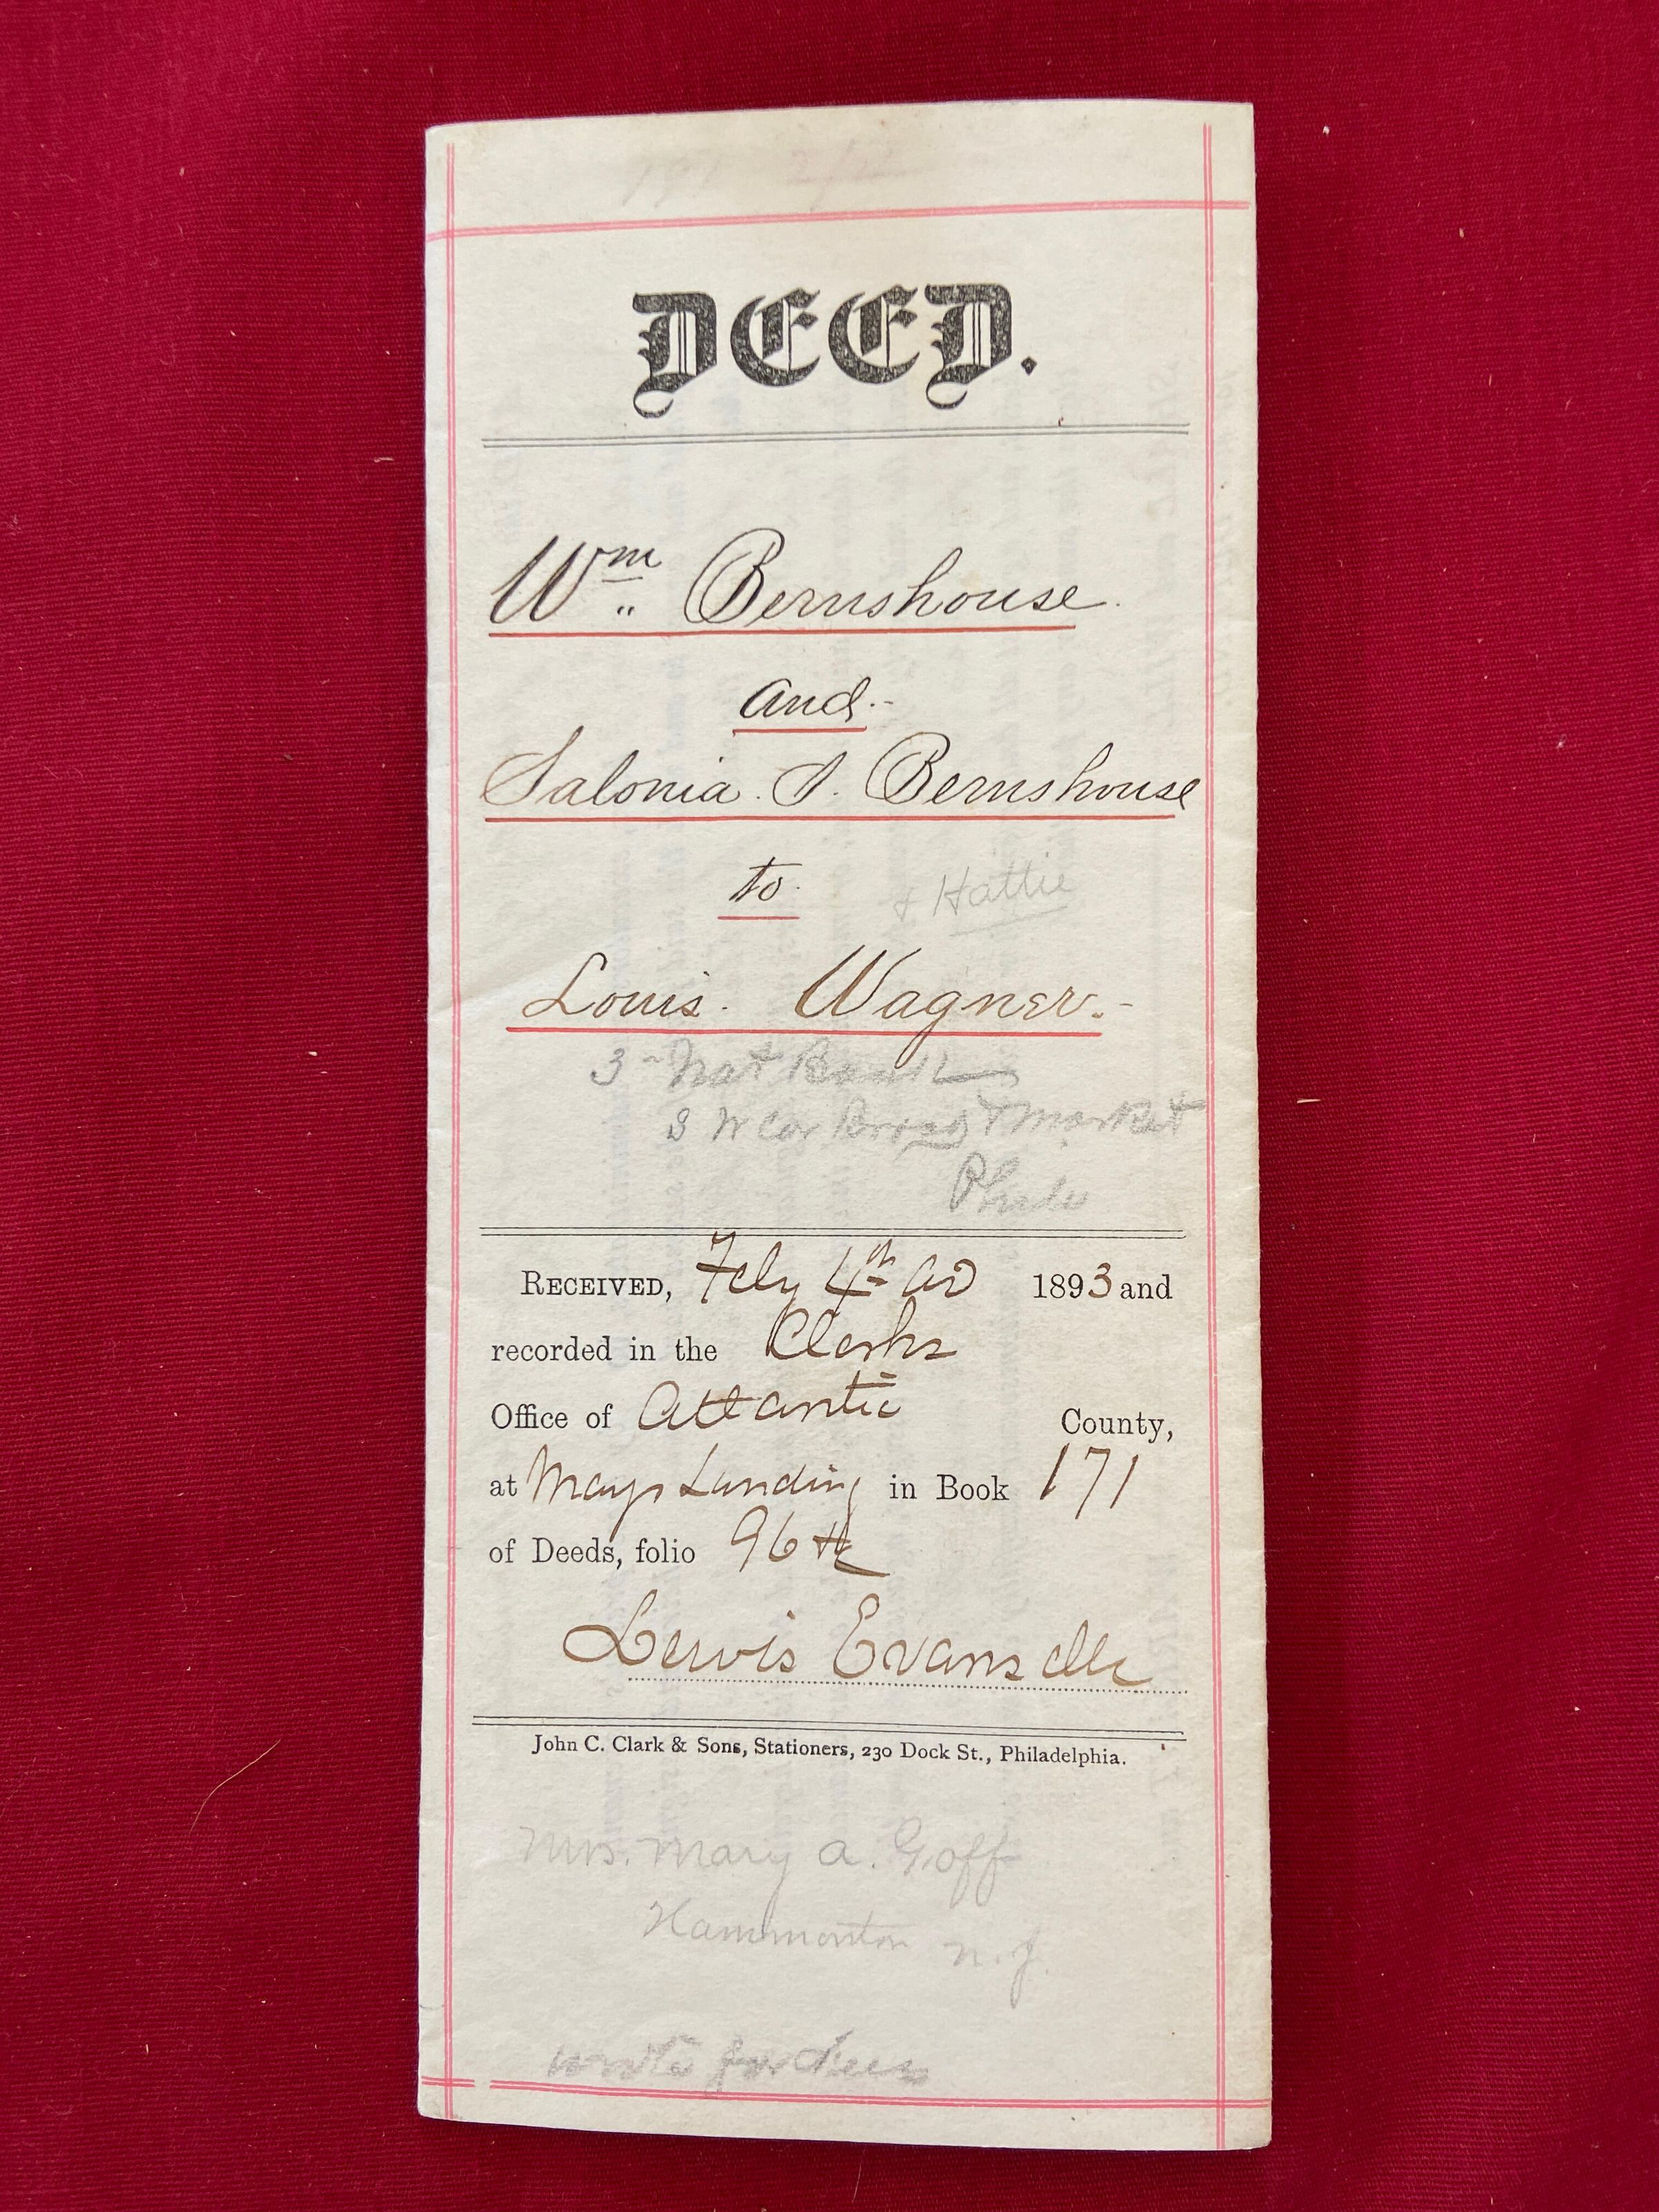 DEED.
Wm Bernshouse.
and.-
Salonia. S. Bernshouse
to.
+ Hattie
Louis. Wagner.-
3 - Nat Bank
S W Cor Broad & Market
Phila
RECEIVED, Feby 4th AD 1893 and
recorded in the Clerks
Office of Atlantic County,
at Mays Landing in Book 171
of Deeds, folio 96 &c
Lewis Evans clk
John C. Clark & Sons, Stationers, 230 Dock St., Philadelphia.
Mrs. Mary A. Goff
Hammonton N. J.
wrote for